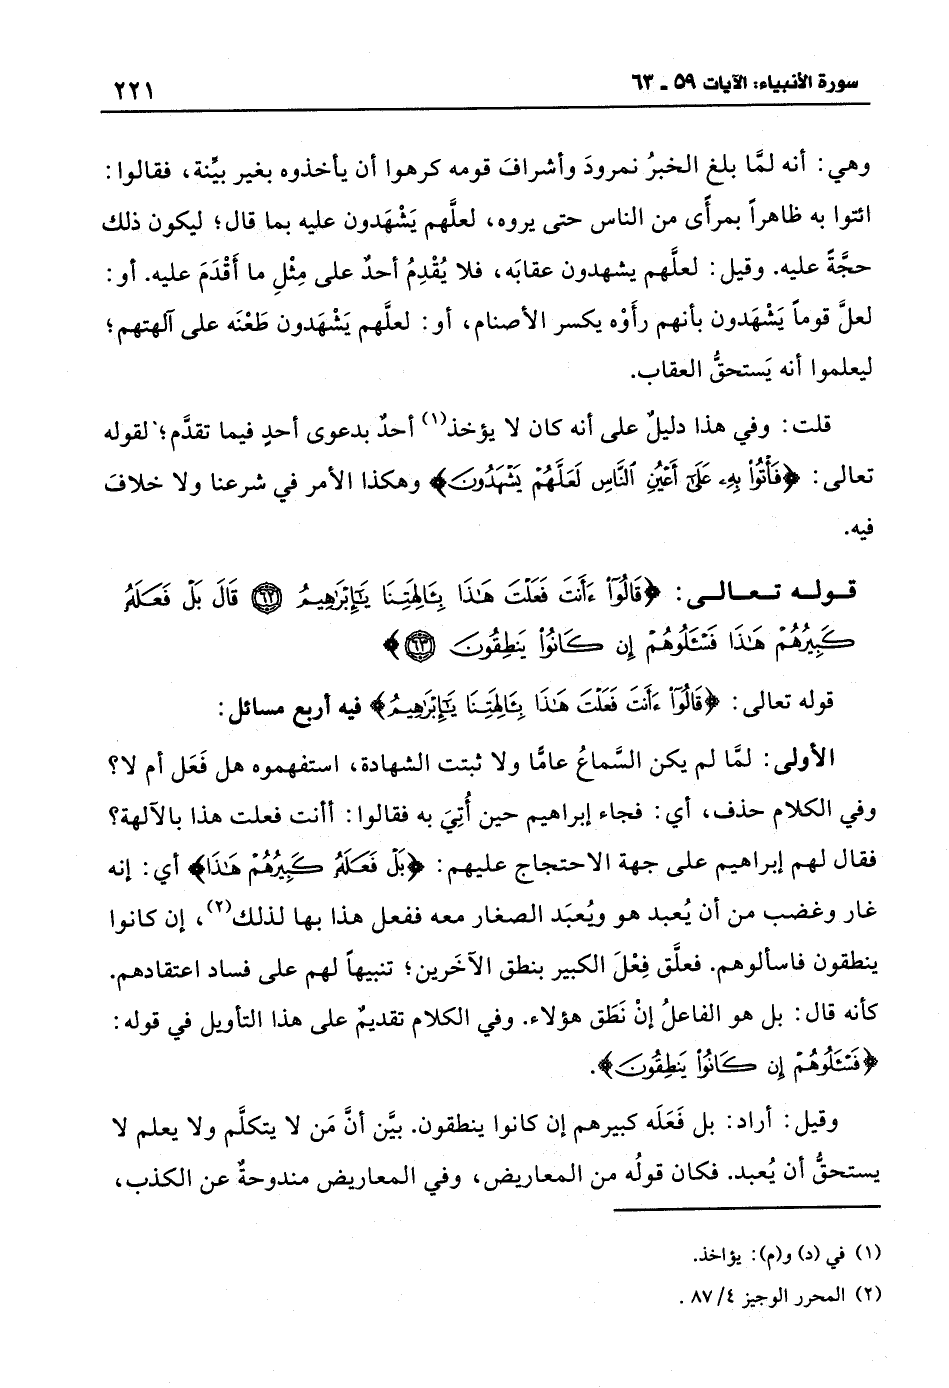 سورة الأنبياء: الآيات ٥٩ ـ ٦٣
٢٢١
وهي: أنه لمَّا بلغ الخبرُ نمرودَ وأشرافَ قومه كرهوا أن يأخذوه بغير بيِّنة، فقالوا:
ائتوا به ظاهراً بمرأًى من الناس حتى يروه، لعلَّهم يَشْهَدون عليه بما قال؛ ليكون ذلك
حجَّةً عليه. وقيل: لعلَّهم يشهدون عقابَه، فلا يُقْدِمُ أحدٌ على مِثْلِ ما أَقْدَمَ عليه. أو:
لعلَّ قوماً يَشْهَدون بأنهم رأَوْه يكسر الأصنام، أو: لعلَّهم يَشْهَدون طَعْنَه على آلهتهم؛
ليعلموا أنه يَستحقُّ العقاب.
قلت: وفي هذا دليلٌ على أنه كان لا يؤخذ(١) أحدٌ بدعوى أحدٍ فيما تقدَّم؛ لقوله
تعالى: ﴿فَأْتُوا۟ بِهِۦ عَلَىٰٓ أَعْيُنِ ٱلنَّاسِ لَعَلَّهُمْ يَشْهَدُونَ﴾ وهكذا الأمر في شرعنا ولا خلافَ
فيه.
قوله تعالى: ﴿قَالُوٓا۟ ءَأَنتَ فَعَلْتَ هَٰذَا بِـَٔالِهَتِنَا يَٰٓإِبْرَٰهِيمُ ٦٢ قَالَ بَلْ فَعَلَهُۥ
كَبِيرُهُمْ هَٰذَا فَسْـَٔلُوهُمْ إِن كَانُوا۟ يَنطِقُونَ ٦٣﴾
قوله تعالى: ﴿قَالُوٓا۟ ءَأَنتَ فَعَلْتَ هَٰذَا بِـَٔالِهَتِنَا يَٰٓإِبْرَٰهِيمُ﴾ فيه أربع مسائل:
الأولى: لمَّا لم يكن السَّماعُ عامًّا ولا ثبتت الشهادة، استفهموه هل فَعَل أم لا؟
وفي الكلام حذف، أي: فجاء إبراهيم حين أُتِيَ به فقالوا: أأنت فعلت هذا بالآلهة؟
فقال لهم إبراهيم على جهة الاحتجاج عليهم: ﴿بَلْ فَعَلَهُۥ كَبِيرُهُمْ هَٰذَا﴾ أي: إنه
غار وغضب من أن يُعبد هو ويُعبَد الصغار معه ففعل هذا بها لذلك(٢)، إن كانوا
ينطقون فاسألوهم. فعلَّق فِعْلَ الكبير بنطق الآخَرين؛ تنبيهاً لهم على فساد اعتقادهم.
كأنه قال: بل هو الفاعلُ إنْ نَطَق هؤلاء. وفي الكلام تقديمٌ على هذا التأويل في قوله:
﴿فَسْـَٔلُوهُمْ إِن كَانُوا۟ يَنطِقُونَ﴾.
وقيل: أراد: بل فَعَلَه كبيرهم إن كانوا ينطقون. بيَّن أنَّ مَن لا يتكلَّم ولا يعلم لا
يستحقُّ أن يُعبد. فكان قولُه من المعاريض، وفي المعاريض مندوحةٌ عن الكذب،
(١) في (د) و(م): يؤاخذ.
(٢) المحرر الوجيز ٤/ ٨٧ .